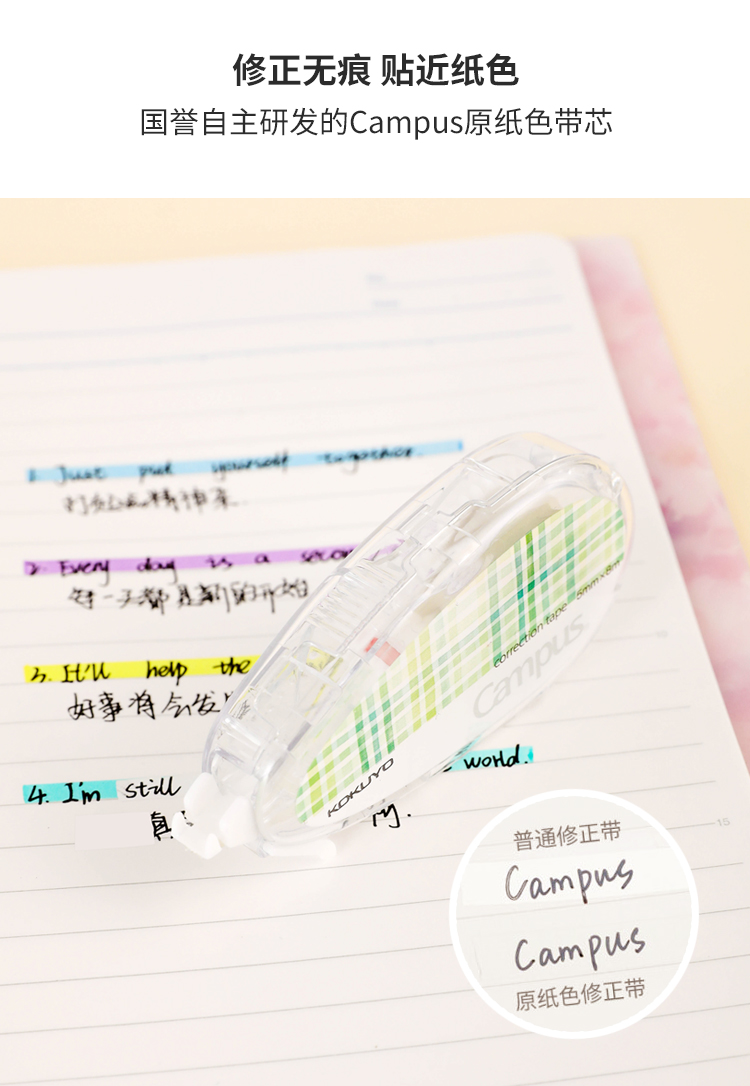 修正无痕 贴近纸色
国誉自主研发的Campus原纸色带芯
1. Just put yourself together.
打起精神来.
2. Every day is a secon
每一天都是新的开始
3. It'll help the
好事将会发
4. I'm still
world.
真
correction tape 5mm×8m
Campus
KOKUYO
15
普通修正带
Campus
Campus
原纸色修正带